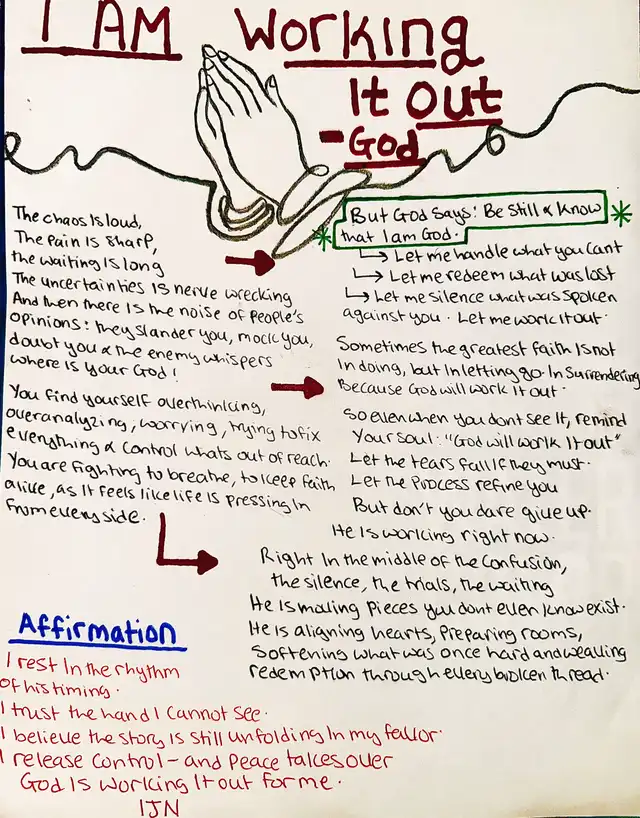 I AM Working
It Out
- God
The chaos Is loud,
The Pain Is sharp,
the waiting Is long
The uncertainties Is nerve wrecking
And then there Is the noise of people's
opinions: they slander you, mock you,
doubt you & the enemy whispers
where is your God!
You find yourself overthinking,
overanalyzing, worrying, trying to fix
everything & control whats out of reach.
You are fighting to breathe, to keep faith
alive, as It feels like life Is pressing In
from every side.
But God says: Be Still & Know
that I am God.
Let me handle what you cant
Let me redeem what was lost
Let me silence what was spoken
against you. Let me work It out.
Sometimes the greatest faith Is not
In doing, but In letting go. In Surrendering
Because God will work It out.
So even when you dont see It, remind
Your soul: "God will work It out"
Let the tears fall If they must.
Let the Process refine you
But don't you dare give up.
He is working right now.
Right In the middle of the confusion,
the silence, the trials, the waiting
He Is moving Pieces you dont even know exist.
He Is aligning hearts, Preparing rooms,
Softening what was once hard and weaving
redemption through every broken thread.
Affirmation
I rest In the rhythm
of his timing.
I trust the hand I cannot see.
I believe the story Is still unfolding In my favor.
I release Control - and Peace takes over
God Is working It out for me.
IJN